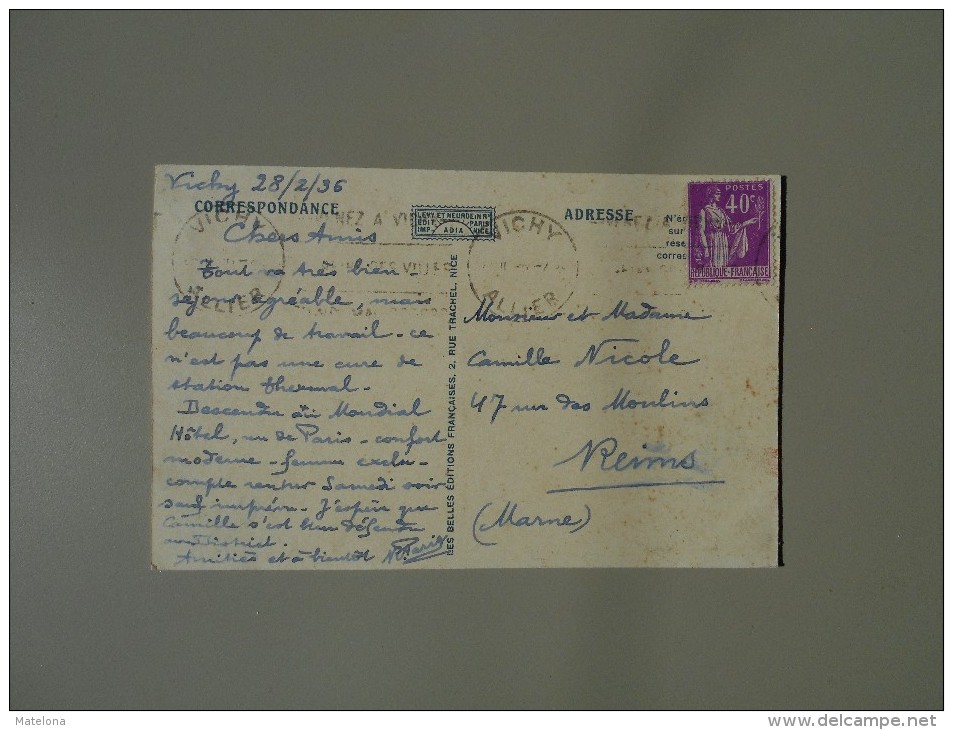 Vichy 28/2/36
CORRESPONDANCE
Chers Amis
Tout va très bien -
séjour agréable, mais
beaucoup de travail - ce
n'est pas une cure de
station thermal -
Descendu au Mondial
Hôtel, rue de Paris - confort
moderne - femme exclu -
compte rentrer Samedi soir
sauf imprévu - J'espère que
Camille s'est bien défendu
au District.
Amitiés et à bientôt
LEVY ET NEURDEIN Rs
EDIT. PARIS
IMP. ADIA NICE
LES BELLES ÉDITIONS FRANÇAISES, 2, RUE TRACHEL, NICE
VICHY
ALLIER
VICHY
ALLIER
ADRESSE
N'éc
sur
rése
corres
POSTES
40c
REPUBLIQUE-FRANÇAISE
Monsieur et Madame
Camille Nicole
47 rue des Moulins
Reims
(Marne)
Matelona
delcampe.net